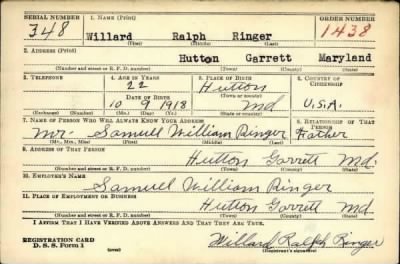 SERIAL NUMBER 1. NAME (Print) ORDER NUMBER
348 Willard Ralph Ringer 1438
(First) (Middle) (Last)
2. ADDRESS (Print)
Hutton Garrett Maryland
(Number and street or R. F. D. number) (Town) (County) (State)
3. TELEPHONE 4. AGE IN YEARS 5. PLACE OF BIRTH 6. COUNTRY OF CITIZENSHIP
22 Hutton
DATE OF BIRTH (Town or county)
10 9 1918 Md U.S.A.
(Exchange) (Number) (Mo.) (Day) (Yr.) (State or country)
7. NAME OF PERSON WHO WILL ALWAYS KNOW YOUR ADDRESS 8. RELATIONSHIP OF THAT PERSON
Mr. Samuel William Ringer Father
(Mr., Mrs., Miss) (First) (Middle) (Last)
9. ADDRESS OF THAT PERSON
Hutton Garrett Md.
(Number and street or R. F. D. number) (Town) (County) (State)
10. EMPLOYER'S NAME
Samuel William Ringer
11. PLACE OF EMPLOYMENT OR BUSINESS
Hutton Garrett Md
(Number and street or R. F. D. number) (Town) (County) (State)
I AFFIRM THAT I HAVE VERIFIED ABOVE ANSWERS AND THAT THEY ARE TRUE.
REGISTRATION CARD
D. S. S. Form 1 Willard Ralph Ringer
(Registrant's signature)